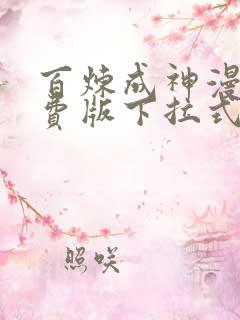 百炼成神漫
费版下拉式
照咲